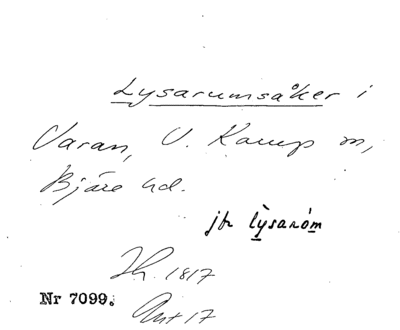 Lysarumsåker i
Varan, V. Karup sn,
Bjäre hd.
jfr lysaróm
Jh. 1817
Nr 7099.
Ant 17